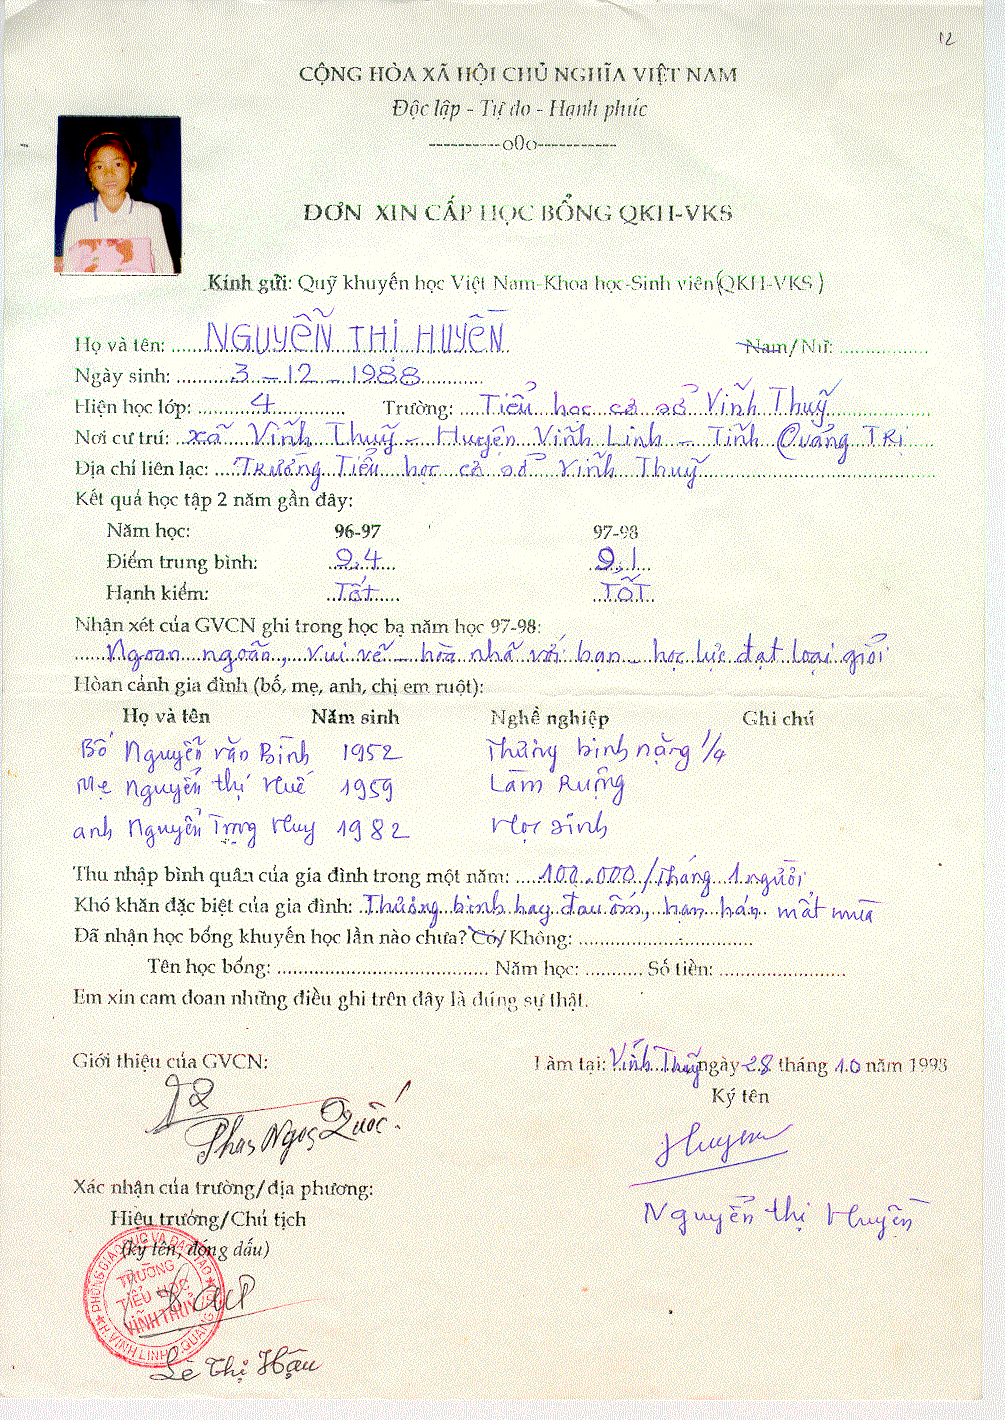 12
CỘNG HÒA XÃ HỘI CHỦ NGHĨA VIỆT NAM
Độc lập - Tự do - Hạnh phúc
----------o0o-----------
ĐƠN XIN CẤP HỌC BỔNG QKH-VKS
Kính gửi: Quỹ khuyến học Việt Nam-Khoa học-Sinh viên(QKH-VKS )
Họ và tên: ......NGUYỄN THỊ HUYỀN Nam/Nữ: ................
Ngày sinh: .........3 - 12 - 1988...........
Hiện học lớp: .........4............. Trường: ....Tiểu học cơ sở Vĩnh Thuỷ..................
Nơi cư trú: ..xã Vĩnh Thuỷ - Huyện Vĩnh Linh - Tỉnh Quảng Trị
Địa chỉ liên lạc: ....Trường Tiểu học cơ sở Vĩnh Thuỷ........................................
Kết quả học tập 2 năm gần đây:
Năm học: 96-97 97-98
Điểm trung bình: ..9,4.... ..9,1...
Hạnh kiểm: ..Tốt.... ..TỐT..
Nhận xét của GVCN ghi trong học bạ năm học 97-98:
......Ngoan ngoãn, vui vẻ - hòa nhã với bạn - học lực đạt loại giỏi
Hòan cảnh gia đình (bố, mẹ, anh, chị em ruột):
Họ và tên Năm sinh Nghề nghiệp Ghi chú
Bố Nguyễn văn Bình 1952 Thương binh nặng 1/4
Mẹ Nguyễn thị Huế 1959 Làm Ruộng
anh Nguyễn Trọng Huy 1982 Học sinh
Thu nhập bình quân của gia đình trong một năm: ....100.000/tháng 1 người
Khó khăn đặc biệt của gia đình: Thương binh hay đau ốm, hạn hán mất mùa
Đã nhận học bổng khuyến học lần nào chưa? Có/ Không: ..............................
Tên học bổng: ..................................... Năm học: .......... Số tiền: ......................
Em xin cam đoan những điều ghi trên đây là đúng sự thật.
Giới thiệu của GVCN: Làm tại: Vĩnh Thuỷ ngày 28 tháng 10 năm 1998
Ký tên
Phan Ngọc Quốc
Huyền
Xác nhận của trường/địa phương:
Nguyễn thị Huyền
Hiệu trưởng/Chủ tịch
(ký tên, đóng dấu)
PHÒNG GIÁO DỤC VÀ ĐÀO TẠO
TRƯỜNG
TIỂU HỌC
VĨNH THUỶ
H. VĨNH LINH T. QUẢNG TRỊ
Lê Thị Hậu